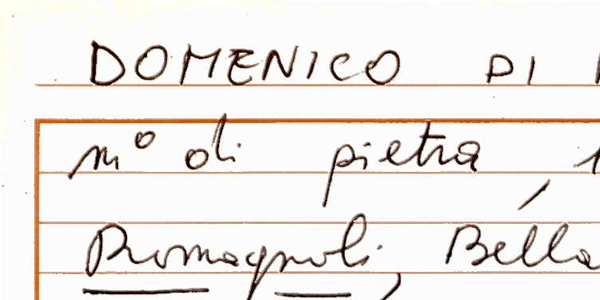 DOMENICO DI
mº di pietra
Romagnoli, Bella